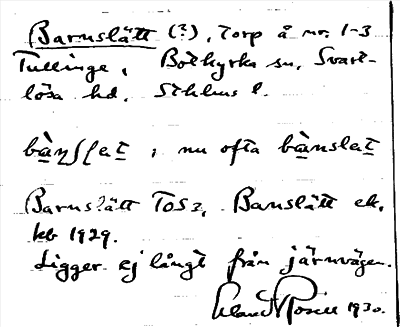 Barnslätt (?), Torp å nr. 1-3
Tullinge, Botkyrka sn, Svart-
lösa hd. Sthlms l.
bàŋʃlat̲, nu ofta bànslat̲
Barnslätt TOS2, Banslätt ek.
kb 1929.
Ligger ej långt från järnvägen.
Rosell 1930.